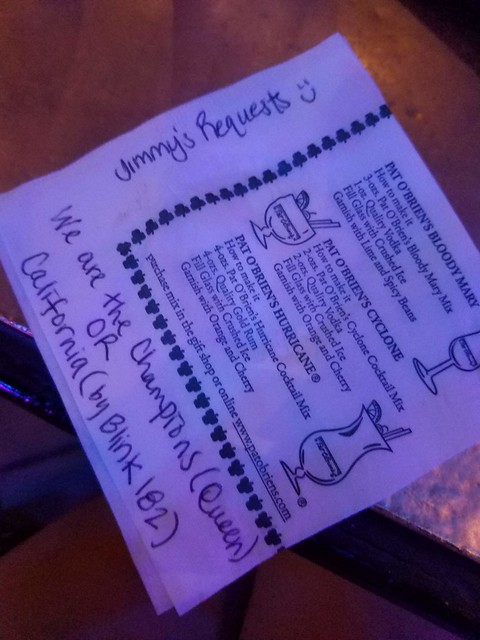 Jimmy's Requests :)
We are the Champions (Queen)
OR
California (by Blink 182)
PAT O'BRIEN'S BLOODY MARY
How to make it
3-ozs. Pat O'Brien's Bloody Mary Mix
1-oz. Quality Vodka
Fill Glass with Crushed Ice
Garnish with Lime and Spicy Beans
PAT O'BRIEN'S CYCLONE
How to make it
4-ozs. Pat O'Brien's Cyclone Cocktail Mix
2-ozs. Quality Vodka
Fill Glass with Crushed Ice
Garnish with Orange and Cherry
PAT O'BRIEN'S HURRICANE®
How to make it
4-ozs. Pat O'Brien's Hurricane Cocktail Mix
4-ozs. Quality Gold Rum
Fill Glass with Crushed Ice
Garnish with Orange and Cherry
purchase mix in the gift shop or online www.patobriens.com
®